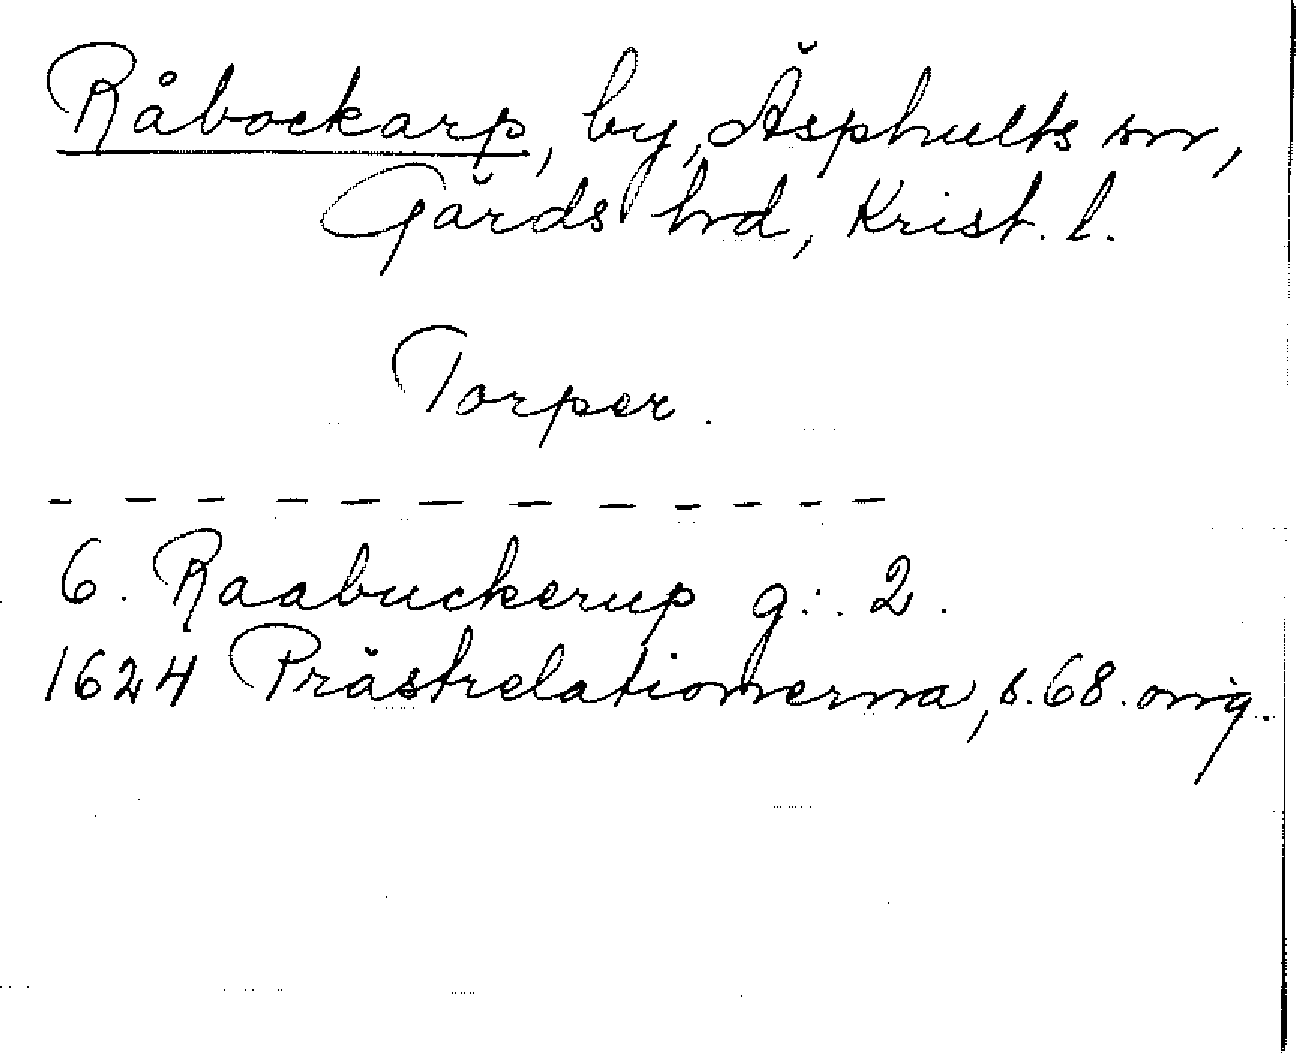 Råbockarp, by, Äsphults sn,
Gärds hrd, Krist. l.
Torper.
— — — — — — — — — — — —
6. Raabuckerup g:. 2.
1624 Prästrelationerna, s. 68. orig.